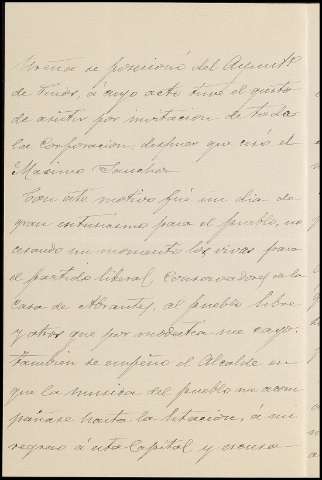 se posesionó del Ayunto
de Tinos, á cuyo acto tuve el gusto
de asistir por invitacion de toda
la Corporacion, despues que cesó el
Maximo Sanchez.
Con este motivo fué un dia de
gran entusiasmo para el pueblo, no
cesando un momento los vivas para
el partido liberal, Conservadores de la
Casa de Abrantes, al pueblo libre
y otros que por modestia me cayo.
Tambien se empeñó el Alcalde en
que la musica del pueblo me acom
pañase hasta la Estacion, á mi
regreso á esta Capital y escusa